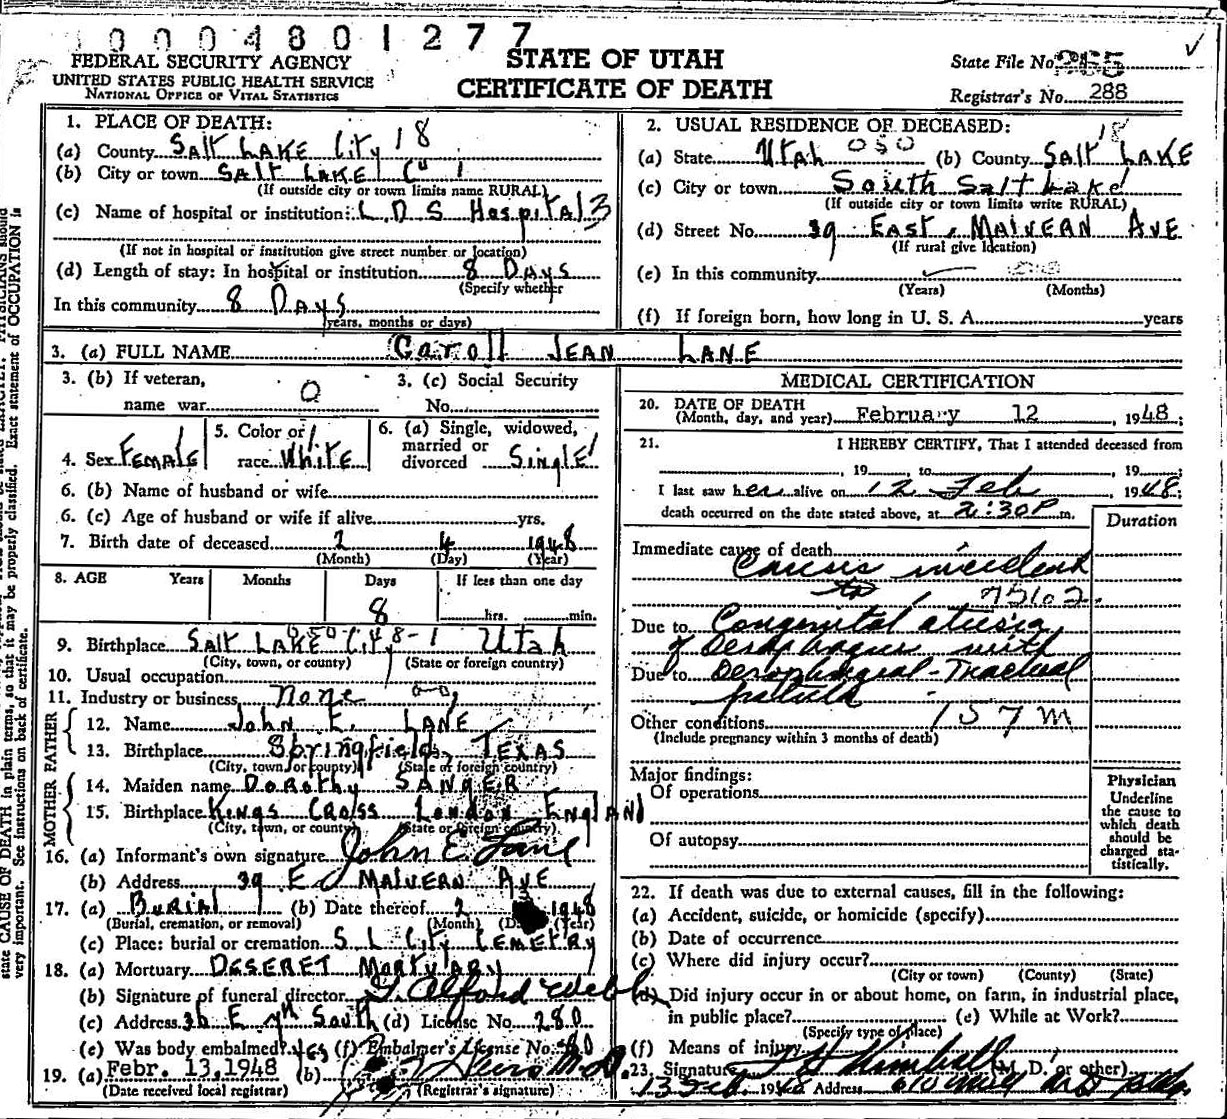 0004801277
FEDERAL SECURITY AGENCY
UNITED STATES PUBLIC HEALTH SERVICE
NATIONAL OFFICE OF VITAL STATISTICS
STATE OF UTAH
CERTIFICATE OF DEATH
State File No.
Registrar's No. 288
1. PLACE OF DEATH:
(a) County SALT LAKE City 18
(b) City or town SALT LAKE C 1
(If outside city or town limits name RURAL)
(c) Name of hospital or institution: L.D.S Hospital 3
(If not in hospital or institution give street number or location)
(d) Length of stay: In hospital or institution 8 DAYS
(Specify whether
In this community 8 DAYS
years, months or days)
2. USUAL RESIDENCE OF DECEASED:
18
(a) State Utah 050 (b) County SALT LAKE
(c) City or town South Salt Lake
(If outside city or town limits write RURAL)
(d) Street No. 39 EAST, MALVERN AVE
(If rural give location)
(e) In this community
(Years) (Months)
(f) If foreign born, how long in U. S. A. years
3. (a) FULL NAME Caroll JEAN LANE
3. (b) If veteran,
name war 0
3. (c) Social Security
No.
4. Sex FEMALE
5. Color or
race White
6. (a) Single, widowed,
married or
divorced Single
6. (b) Name of husband or wife
6. (c) Age of husband or wife if alive yrs.
7. Birth date of deceased 2 4 1948
(Month) (Day) (Year)
8. AGE Years Months Days If less than one day
8 hrs. min.
9. Birthplace SALT LAKE City Utah
(City, town, or county) (State or foreign country)
10. Usual occupation
11. Industry or business none
FATHER
12. Name John E. LANE
13. Birthplace Springfield, TEXAS
(City, town, or county) (State or foreign country)
MOTHER
14. Maiden name Dorothy SANGER
15. Birthplace KINGS CROSS London England
(City, town, or county) (State or foreign country)
16. (a) Informant's own signature John E Lane
(b) Address 39 E MALVERN AVE
17. (a) Burial (b) Date thereof 2 1948
(Burial, cremation, or removal) (Month) (Year)
(c) Place: burial or cremation S L City CEMETRY
18. (a) Mortuary DESERET Mortuary
(b) Signature of funeral director Alford Webb
(c) Address 36 E 7th South (d) License No. 280
(e) Was body embalmed? yes (f) Embalmer's License No.
19. (a) Febr. 13, 1948 (b) M.D.
(Date received local registrar) (Registrar's signature)
MEDICAL CERTIFICATION
20. DATE OF DEATH
(Month, day, and year) February 12, 1948;
21. I HEREBY CERTIFY, That I attended deceased from
, 19 , to , 19 ;
I last saw her alive on 12 Feb, 1948;
death occurred on the date stated above, at 2:30 P m.
Duration
Immediate cause of death
Causes incident
to
Due to Congenital atresia
of Oesophagus with
Due to Oesophageal-Tracheal
fistula
157m
Other conditions
(Include pregnancy within 3 months of death)
Major findings:
Of operations
Of autopsy
Physician
Underline
the cause to
which death
should be
charged sta-
tistically.
22. If death was due to external causes, fill in the following:
(a) Accident, suicide, or homicide (specify)
(b) Date of occurrence
(c) Where did injury occur?
(City or town) (County) (State)
(d) Did injury occur in or about home, on farm, in industrial place,
in public place? (e) While at Work?
(Specify type of place)
(f) Means of injury
23. Signature Kimball (M. D. or other)
13 Feb. 1948 Address
state CAUSE OF DEATH in plain terms, so that it may be properly classified. Exact statement of OCCUPATION is
very important. See instructions on back of certificate.